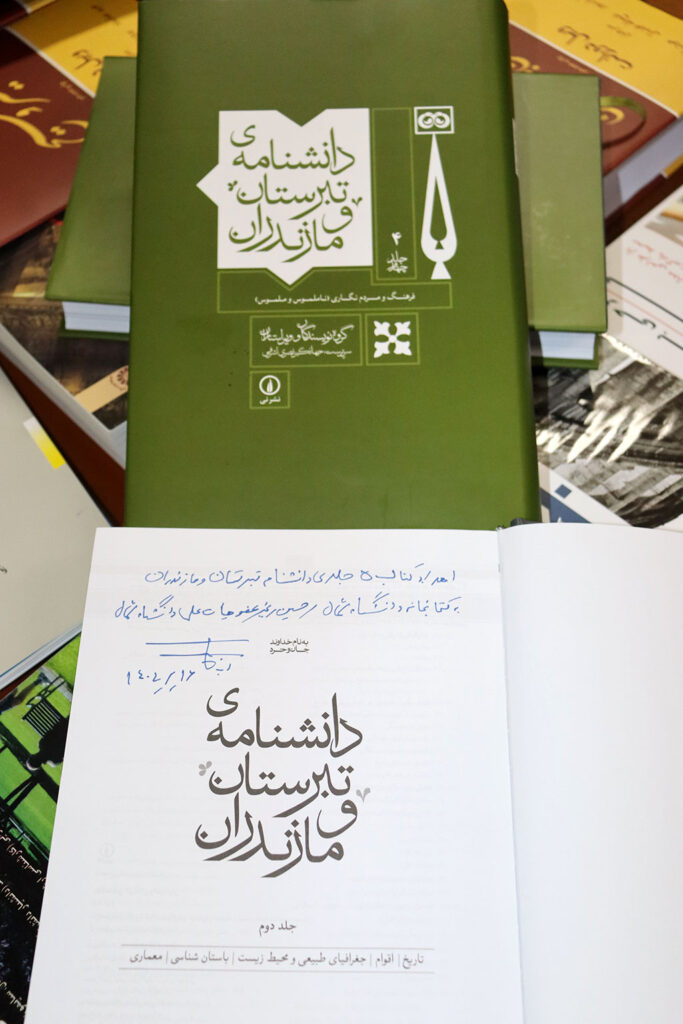 دانشنامه‌ی
تبرستان
و
مازندران
۴
جلد
چهارم
فرهنگ و مردم نگاری (ناملموس و ملموس)
گروه نویسندگان و ویراستاران
سرپرست: جهانگیر نصری اشرفی
نشر نی
اهداء کتاب ۵ جلدی دانشنامه تبرستان و مازندران
به کتابخانه دانشگاه شمال / حسین عضو هیات علمی دانشگاه شمال
به نام خداوند
جان و خرد
دانشنامه‌ی
تبرستان
و
مازندران
جلد دوم
تاریخ | اقوام | جغرافیای طبیعی و محیط زیست | باستان شناسی | معماری